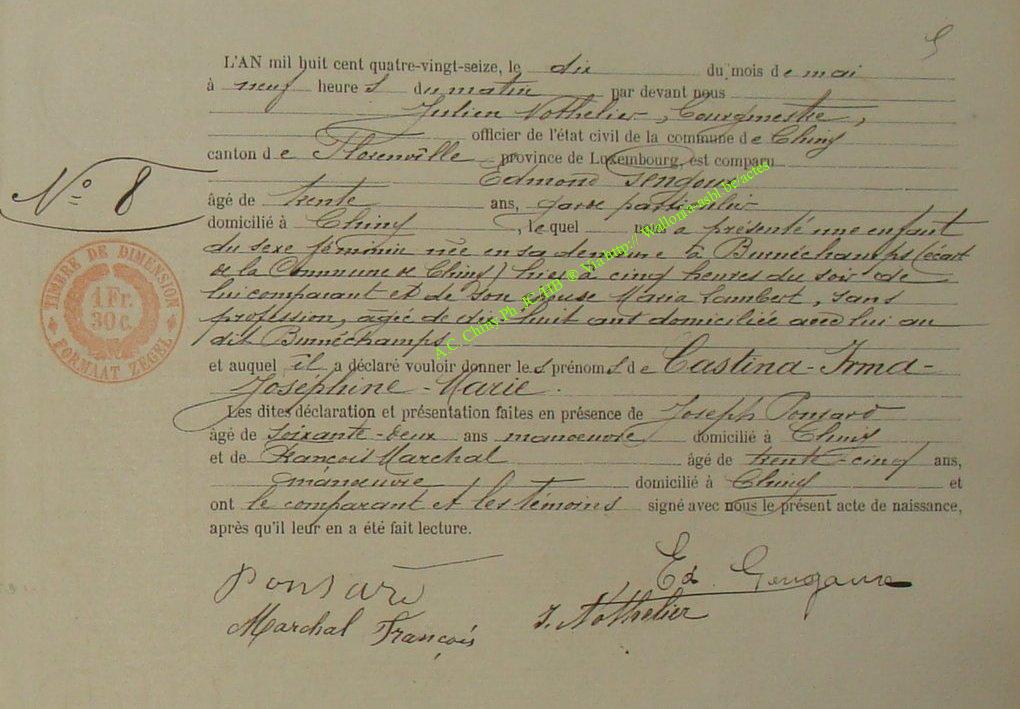 5
L'AN mil huit cent quatre-vingt-seize, le dix du mois de mai
à neuf heures du matin par devant nous
Julien Nothelier, bourgmestre,
officier de l'état civil de la commune de Chiny
canton de Florenville province de Luxembourg, est comparu
Edmond
N° 8
âgé de trente ans, garde particulier
domicilié à Chiny, lequel nous a présenté une enfant
du sexe féminin née en sa demeure à Burnéchamps (écart
de la Commune de Chiny) hier à cinq heures du soir de
lui comparant et de son épouse Maria Lambert, sans
profession, âgée de dix huit ans domiciliée avec lui au
dit Burnéchamps
et auquel il a déclaré vouloir donner les prénoms de Castina-Irma-
Joséphine-Marie.
Les dites déclaration et présentation faites en présence de Joseph Ponsard
âgé de soixante-deux ans manoeuvre domicilié à Chiny
et de François Marchal âgé de trente-cinq ans,
manoeuvre domicilié à Chiny et
ont le comparant et les témoins signé avec nous le présent acte de naissance,
après qu'il leur en a été fait lecture.
TIMBRE DE DIMENSION
1 Fr.
30 C.
FORMAAT ZEGEL
A.C. Chiny Ph. K-HB ® Via http://Wallonia-asbl.be/actes
Ponsard
Ed.
Marchal François
J. Nothelier